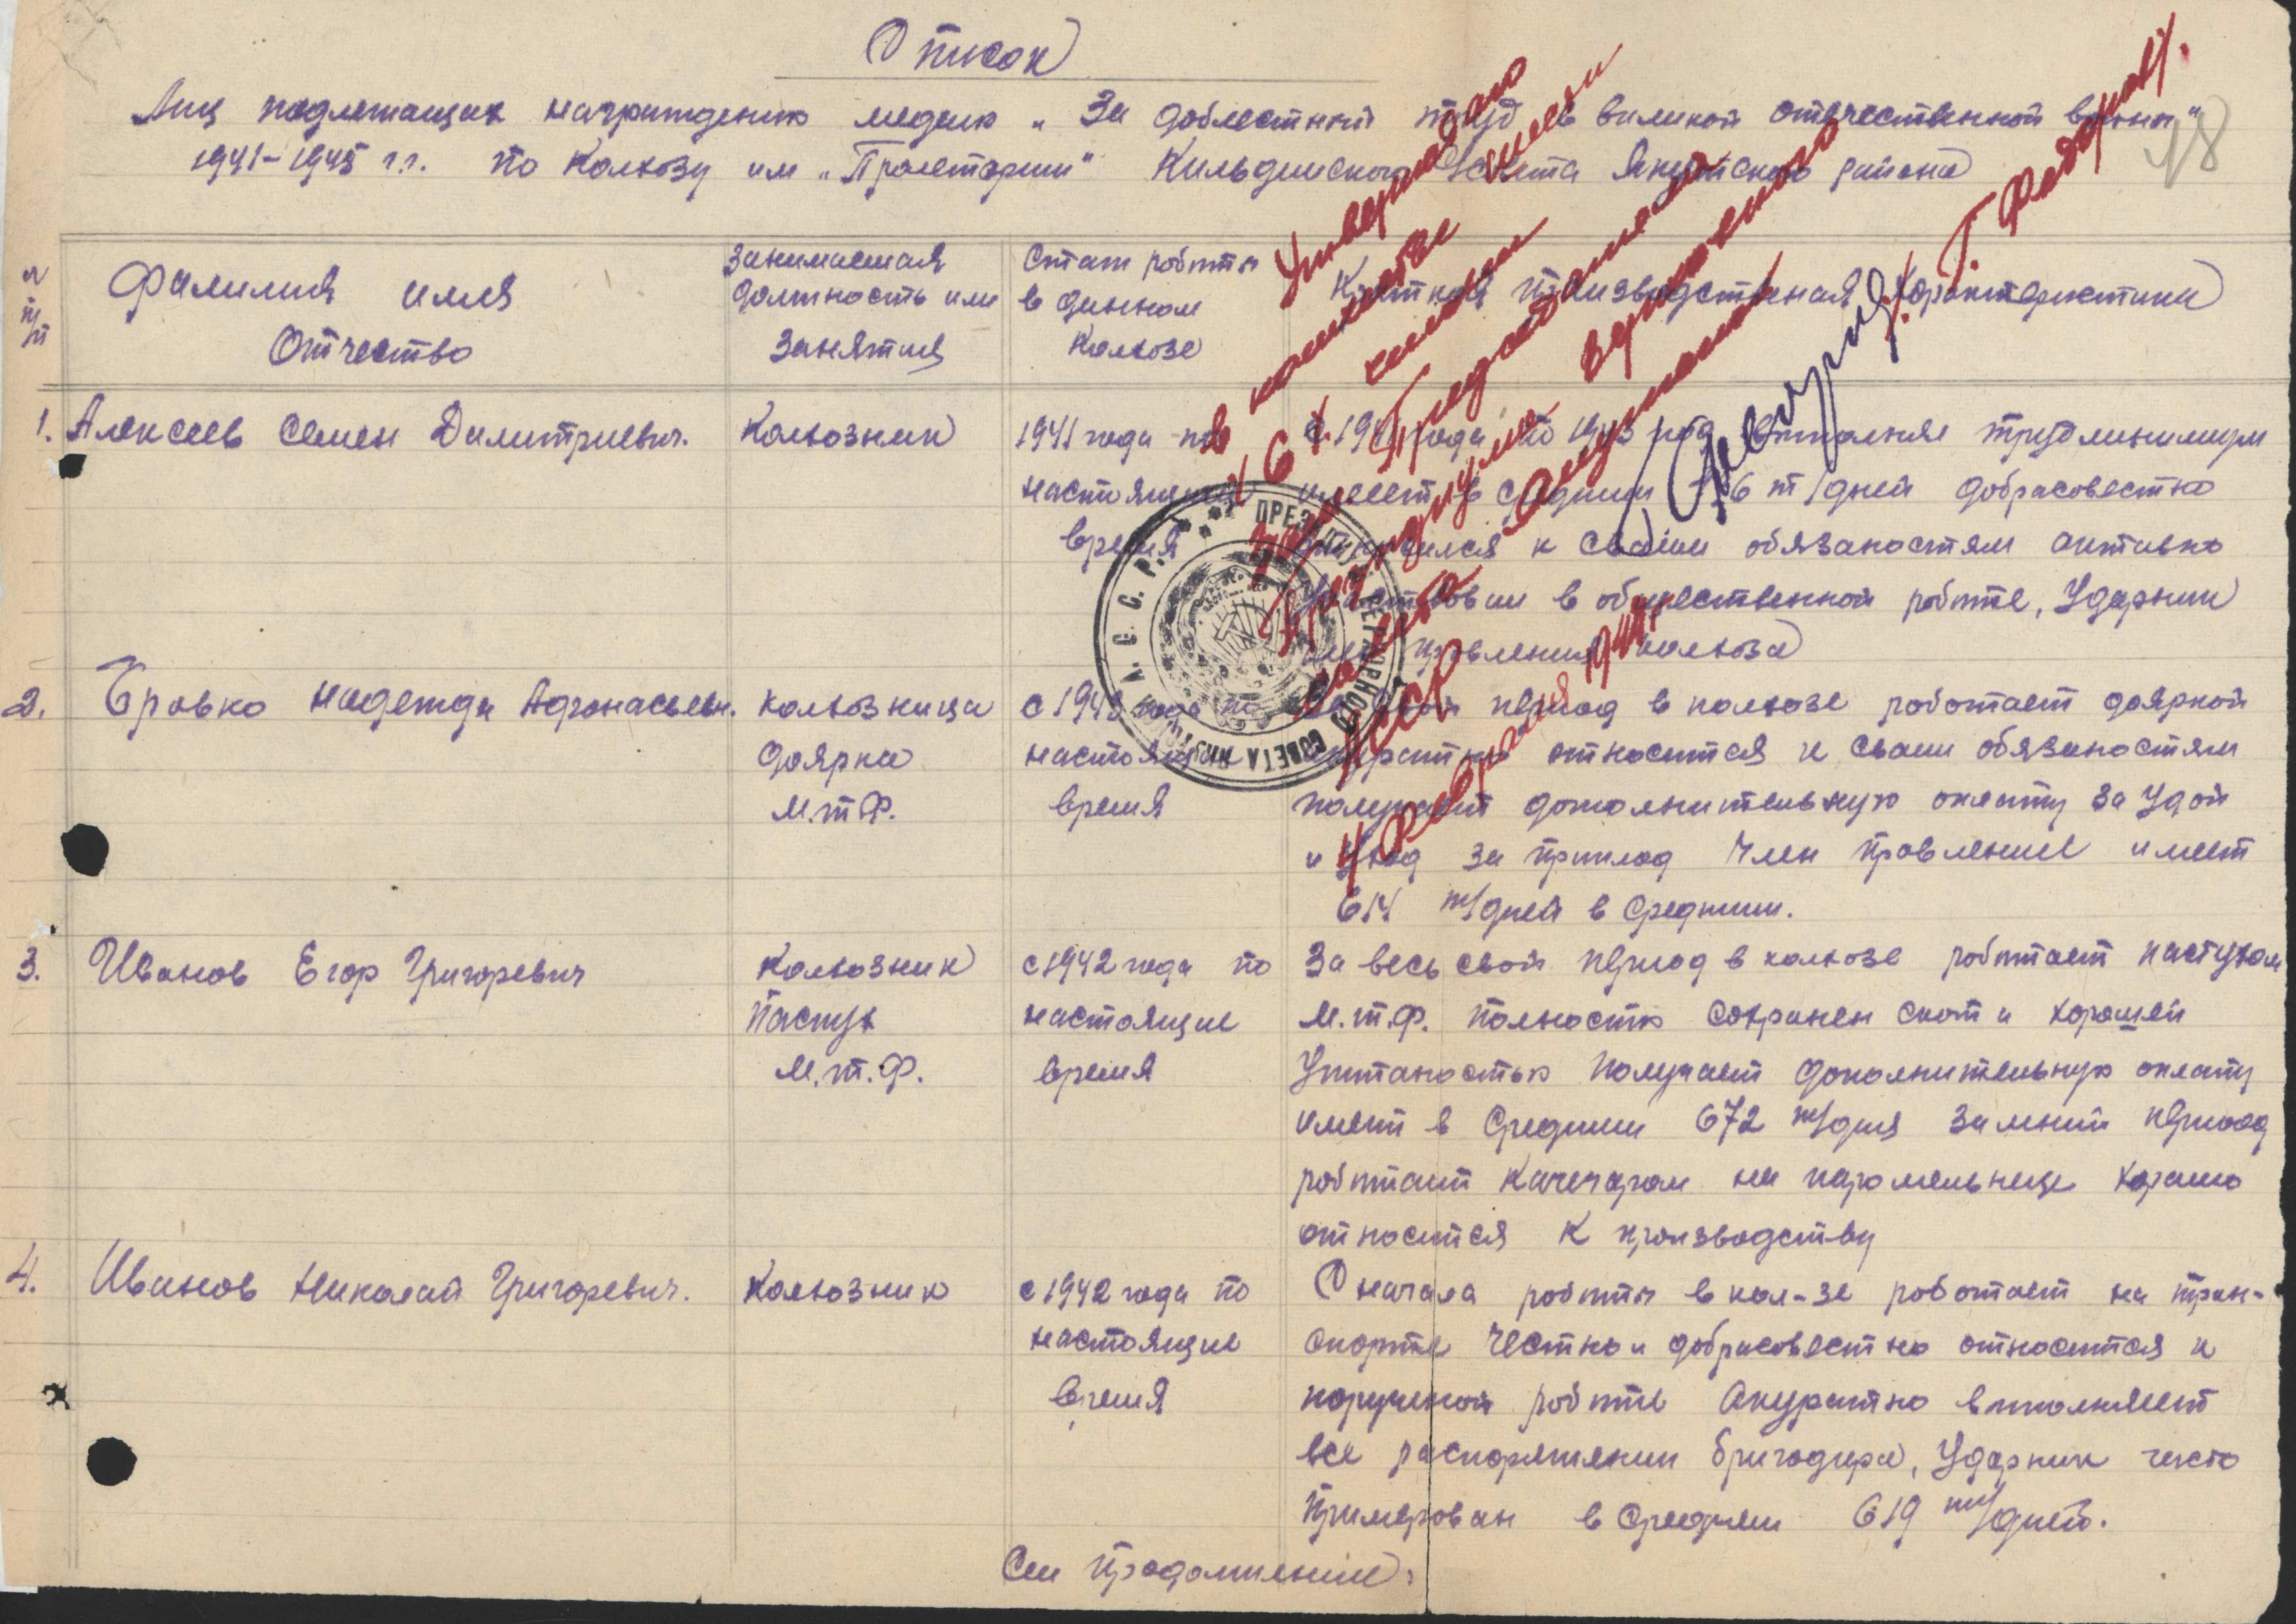 Список
Лиц подлежащих награждению медалю „За доблестный труд в великой отечественной войны"
1941–1945 г.г. по Колхозу им „Пролетарии" Кильдямского Совета Якутского района
18
N п/п
Фамилия имя Отчество
Занимаемая должность или занятия
Стаж работы в данном Колхозе
Краткая производственная характеристика
1. Алексеев Семен Димитриевич.
Колхозник
1941 года по
настоящие
время
с 1941 года по 1945 год выполнял трудминимум
имеет в среднем т/дней добрасовестно
относился к сваим обязаностям активно
участвовал в общественной работе, Ударник
член правления колхоза
2. Бровко Надежда Афонасьевн.
колхозница
доярка
М.т.Ф.
с 1943 года по
настоящие
время
свой период в колхозе работает дояркой
акуратно относится к сваим обязаностям
получает дополнительную оплату за удой
и уход за приплод Член правление имеет
614 т/дней в среднем.
3. Иванов Егор Григоревич
Колхозник
Пастух
М.т.Ф.
с 1942 года по
настоящие
время
За весь свой период в колхозе работает пастухом
М.т.Ф. полностю сохранен скот и хорошей
Упитаностью получает дополнительную оплату
имеет в среднем 672 т/дня зимний период
работает качечаром на паромельнеце хорашо
относится к производству
4. Иванов Николай Григоревич.
Колхозник
с 1942 года по
настоящие
время
С начала работы в кол-зе работает на тран-
спорте Честно и добрасовестно относится к
порученой работе Акуратно выполняет
все распоряжении бригадира, Ударник часто
Примерован в среднем 619 т/дней.
См продолжении:
Утверждаю
в количестве
/ 6 / человек
Президиума Верховного
Совета Якутской
АССР
/ Т. Федоров /.
4 февраля 194
ПРЕЗИДИУМ
СОВЕТА
А. С. С. Р.